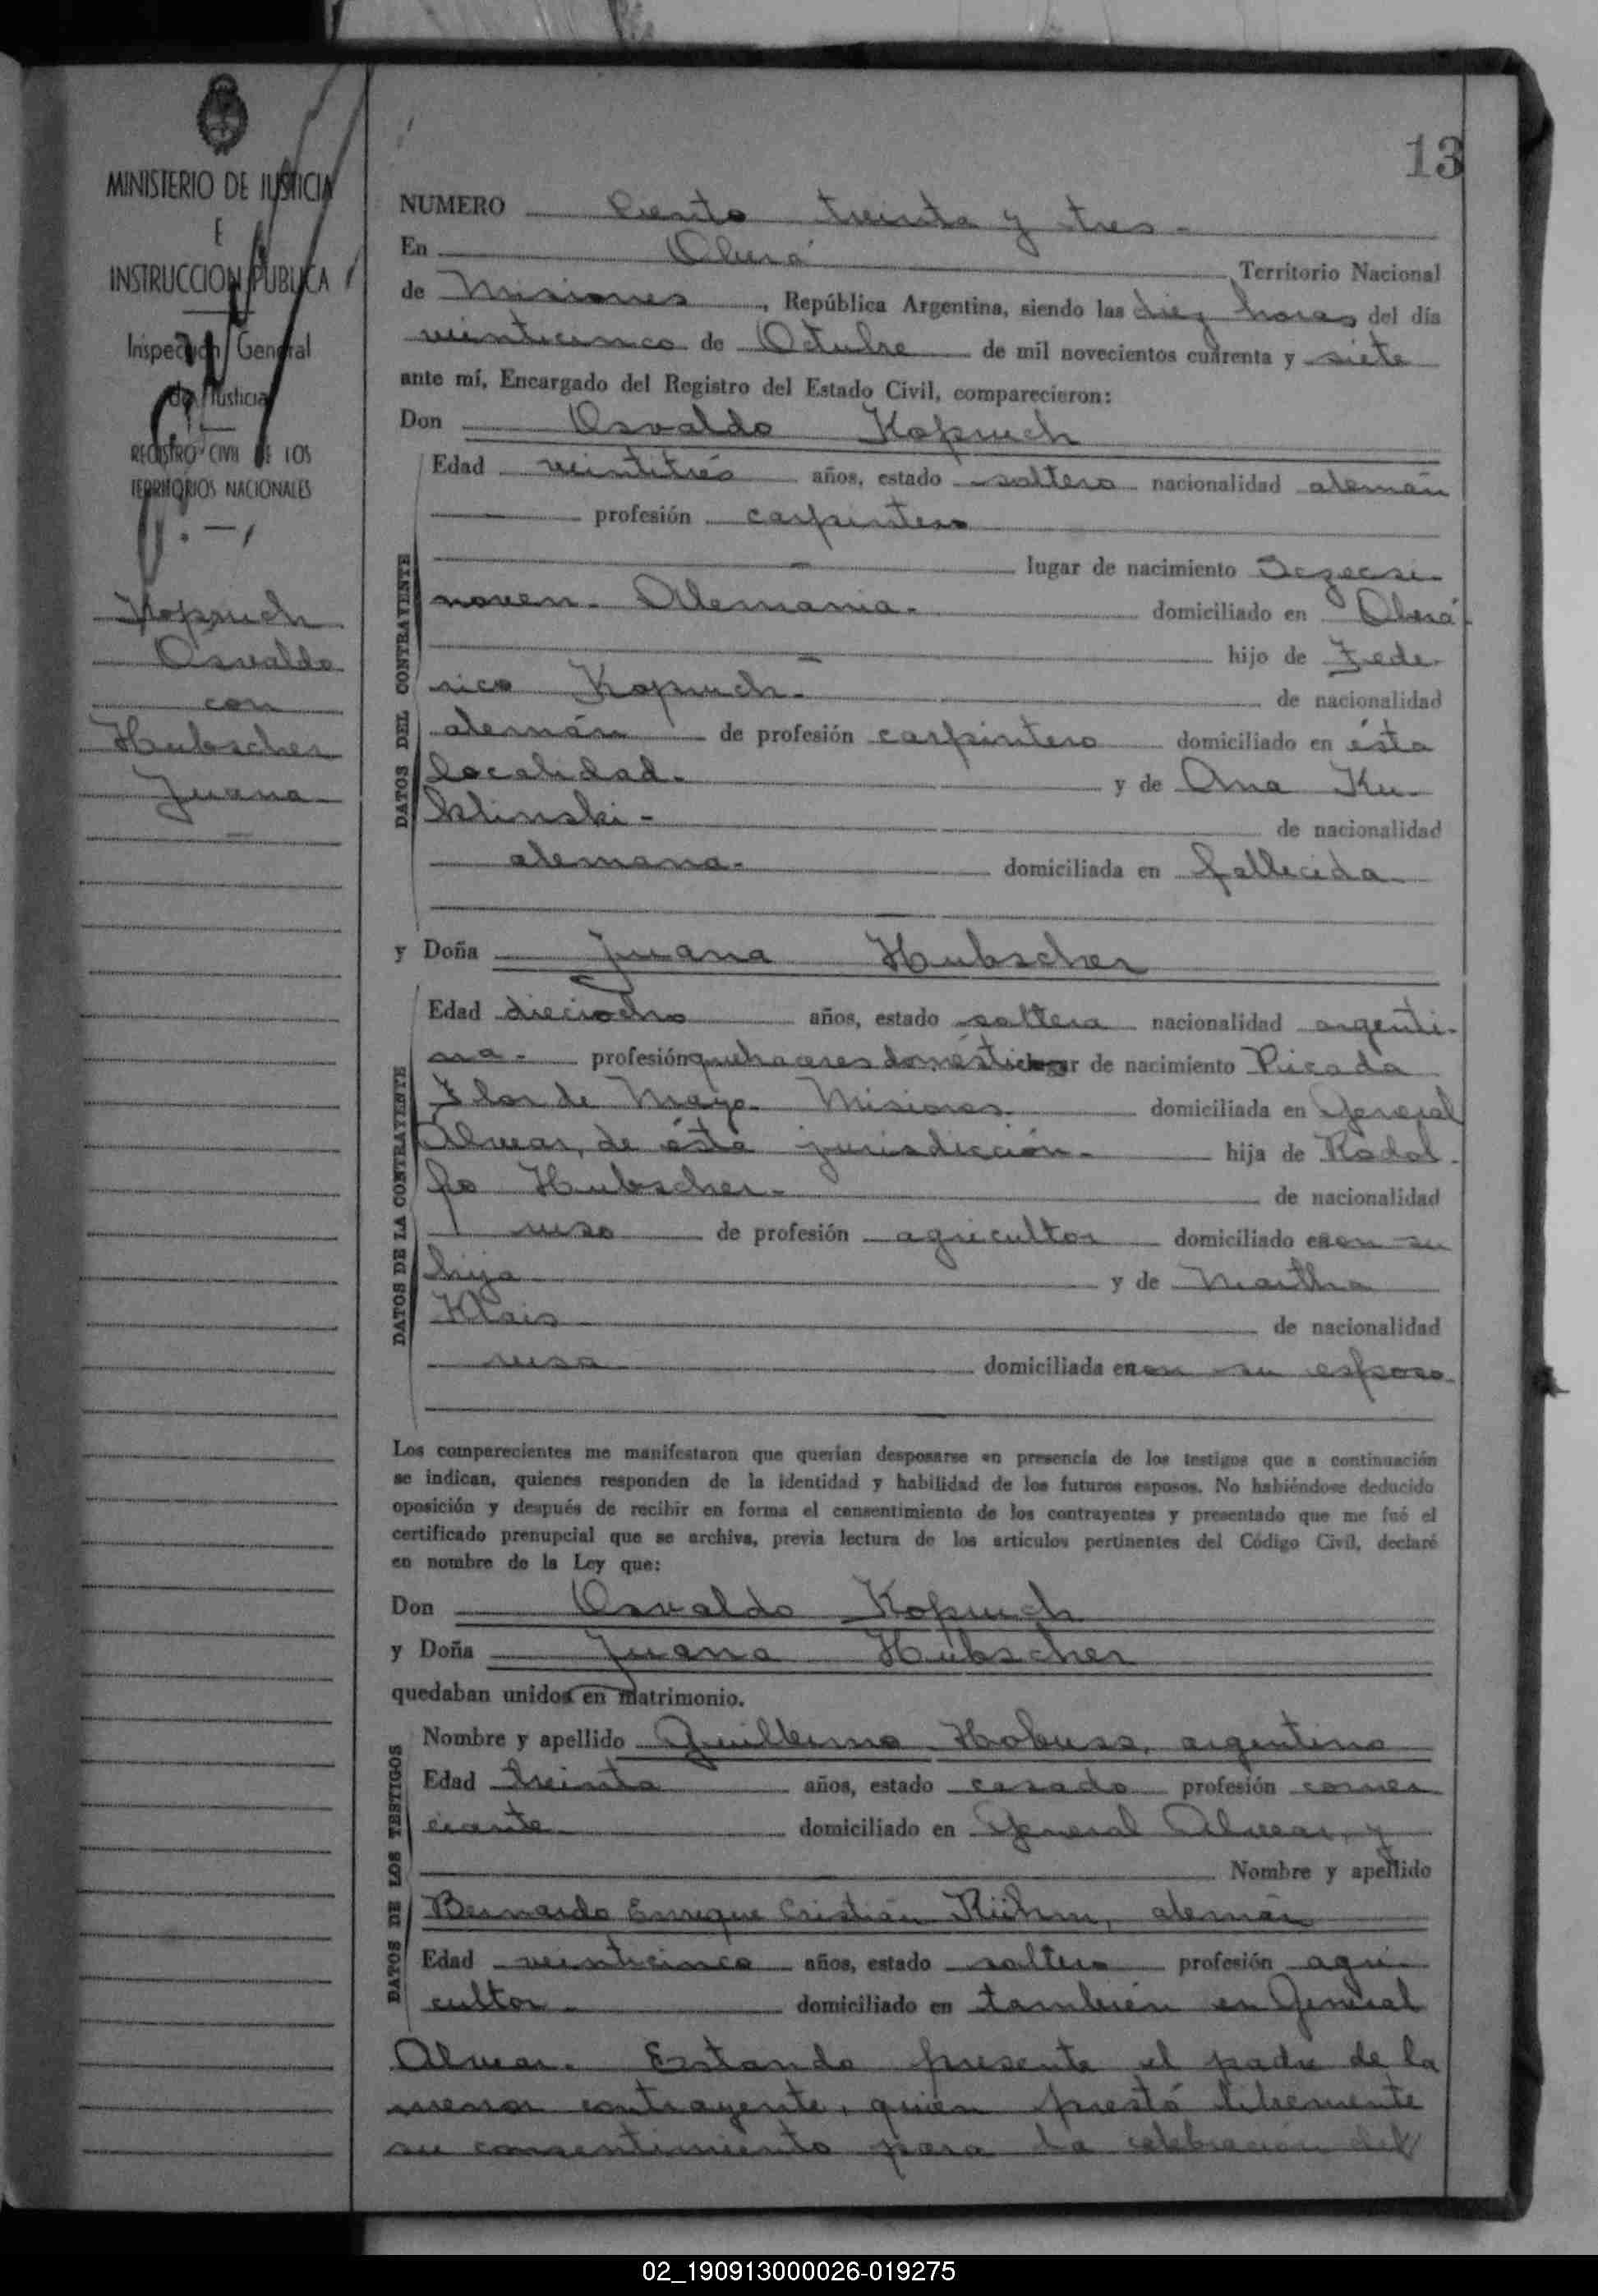 13
MINISTERIO DE JUSTICIA
E
INSTRUCCION PUBLICA
Inspección General
de Justicia
REGISTRO CIVIL DE LOS
TERRITORIOS NACIONALES
Kopruch
Osvaldo
con
Hubscher
Juana
NUMERO Ciento treinta y tres.-
En Oberá Territorio Nacional
de Misiones, República Argentina, siendo las diez horas del día
veinticinco de Octubre de mil novecientos cuarenta y siete
ante mí, Encargado del Registro del Estado Civil, comparecieron:
Don Osvaldo Kopruch
DATOS DEL CONTRAYENTE
Edad veintitrés años, estado soltero nacionalidad alemán
profesión carpintero
lugar de nacimiento
noven.- Alemania.- domiciliado en Oberá
hijo de Fede-
rico Kopruch.- de nacionalidad
alemán de profesión carpintero domiciliado en ésta
localidad.- y de Ana Ku-
klinski.- de nacionalidad
alemana.- domiciliada en fallecida
y Doña Juana Hubscher
DATOS DE LA CONTRAYENTE
Edad dieciocho años, estado soltera nacionalidad argenti-
na.- profesión quehaceres domésticos lugar de nacimiento Picada
Flor de Mayo. Misiones.- domiciliada en General
Alvear, de ésta jurisdicción.- hija de Rodol-
fo Hubscher.- de nacionalidad
ruso de profesión agricultor domiciliado en con su
hija y de Martha
Klais de nacionalidad
rusa domiciliada en con su esposo.
Los comparecientes me manifestaron que querían desposarse en presencia de los testigos que a continuación
se indican, quienes responden de la identidad y habilidad de los futuros esposos. No habiéndose deducido
oposición y después de recibir en forma el consentimiento de los contrayentes y presentado que me fué el
certificado prenupcial que se archiva, previa lectura de los artículos pertinentes del Código Civil, declaré
en nombre de la Ley que:
Don Osvaldo Kopruch
y Doña Juana Hubscher
quedaban unidos en matrimonio.
DATOS DE LOS TESTIGOS
Nombre y apellido Guillermo Hobuss, argentino
Edad treinta años, estado casado profesión comer
ciante domiciliado en General Alvear, y
Nombre y apellido
Bernardo Enrique Cristián Rühm, alemán
Edad veinticinco años, estado soltero profesión agri-
cultor domiciliado en también en General
Alvear. Estando presente el padre de la
menor contrayente, quien prestó libremente
su consentimiento para la celebración del
02_190913000026-019275